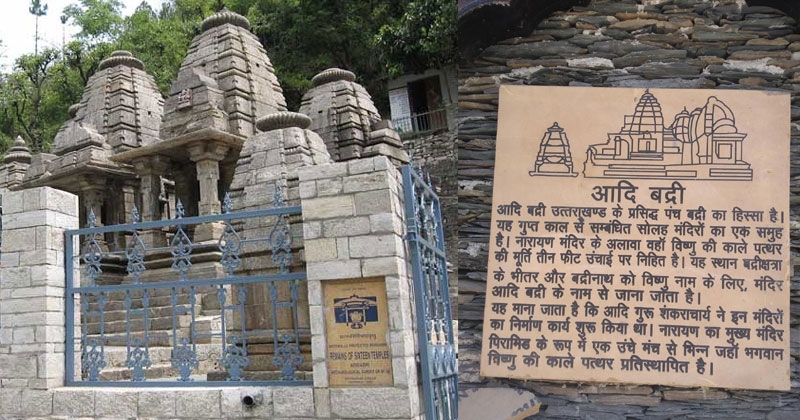 REMAINS OF SIXTEEN TEMPLES
आदि बद्री
आदि बद्री उत्तराखण्ड के प्रसिद्ध पंच बद्री का हिस्सा है।
यह गुप्त काल से सम्बंधित सोलह मंदिरों का एक समूह
है। नारायण मंदिर के अलावा वहाँ विष्णु की काले पत्थर
की मूर्ति तीन फीट उंचाई पर निहित है। यह स्थान बद्रीक्षत्रा
के भीतर और बद्रीनाथ को विष्णु नाम के लिए, मंदिर
आदि बद्री के नाम से जाना जाता है।
यह माना जाता है कि आदि गुरू शंकराचार्य ने इन मंदिरों
का निर्माण कार्य शुरू किया था। नारायण का मुख्य मंदिर
पिरामिड के रूप में एक उंचे मंच से भिन्न जहाँ भगवान
विष्णु की काले पत्थर प्रतिस्थापित है।